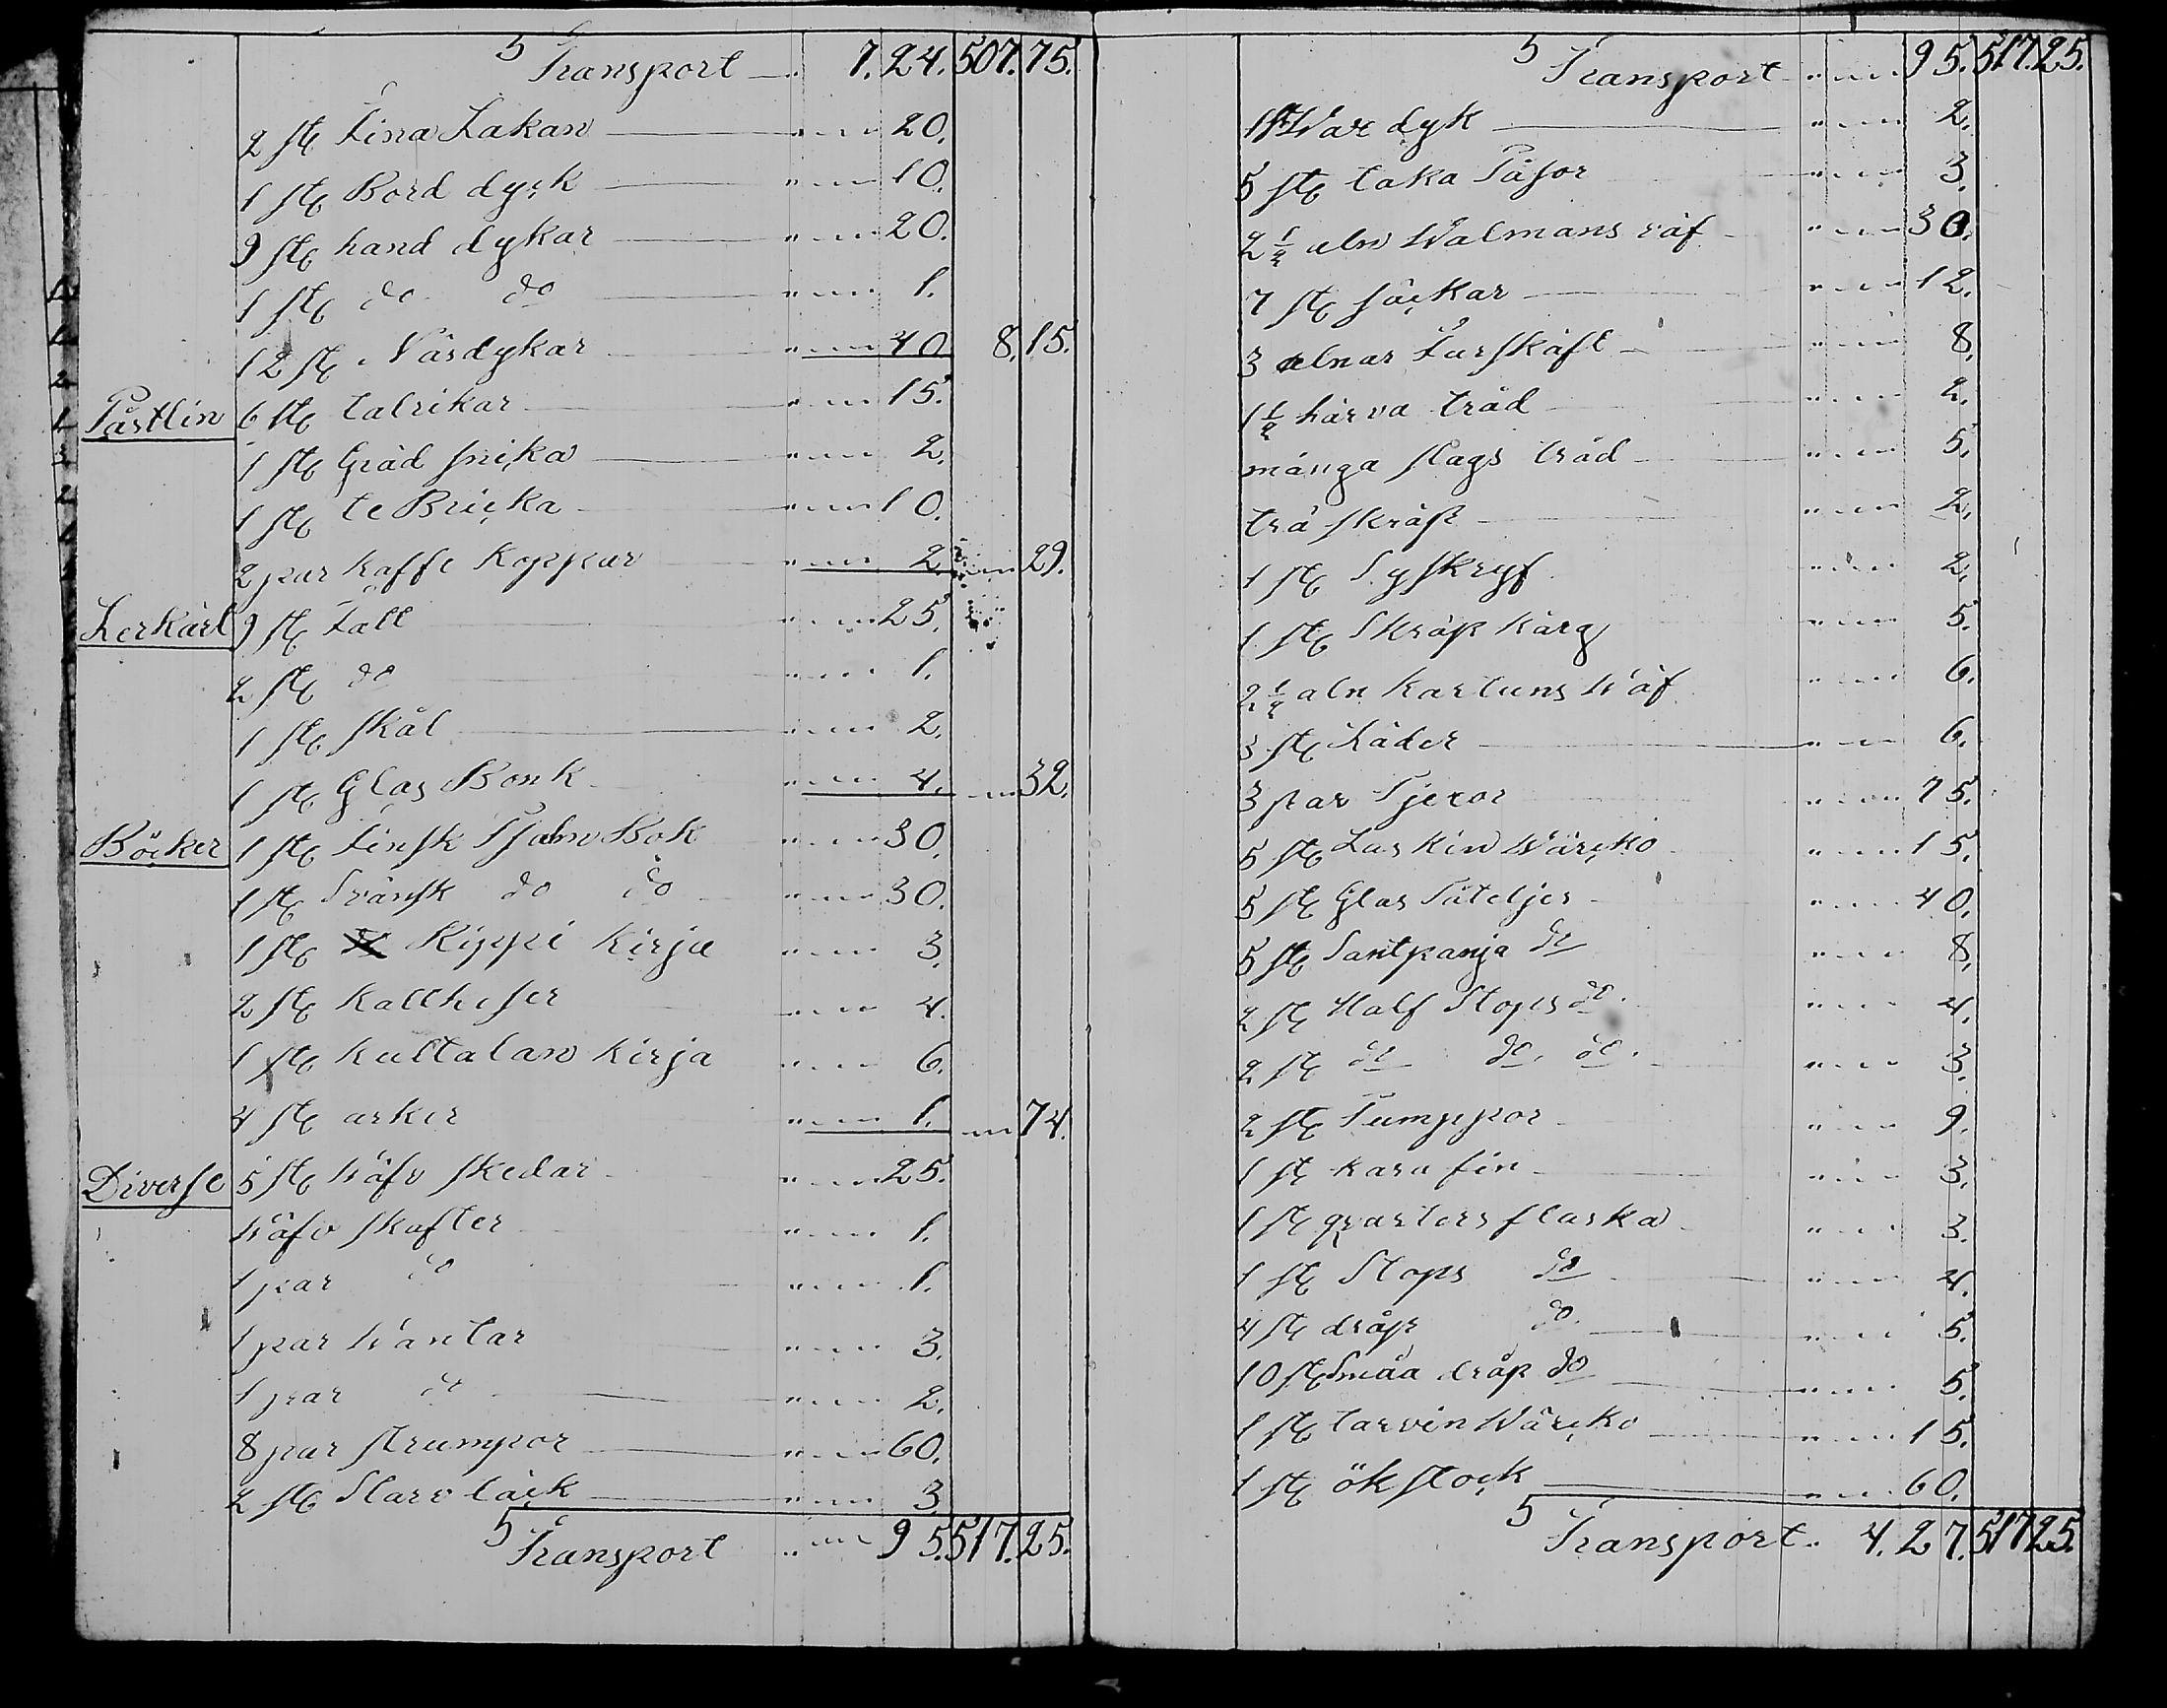 5 Transport 7.24. 507.75.
2 st Lina Lakan " " 20.
1 st Bord dyck " " 10.
9 st hand dykar " " 20.
1 st do do " " 1.
12 st Närdykar " " 40 8.15.
Påstlin 6 st talrikar " " 15.
1 st Gräd snika " " 2.
1 st te Bricka " " 10.
2 par kaffe koppar " " 2. " 29.
Lerkärl 9 st Fatt " " 25.
2 st do " " 1.
1 st skål " " 2.
1 st Glas Bonk " " 4. " 32.
Böcker 1 st Finsk Psalm Bok " " 30.
1 st Svänsk do do " " 30.
1 st Rippi kirja " " 3.
2 st Kattheser " " 4.
1 st kultalan kirja " " 6.
4 st arker " " 1. " 74.
Diverse 5 st Väfv skedar " " 25.
Väfv skafter " " 1.
1 par do " " 1.
1 par Vantar " " 3.
1 par do " " 2.
8 par strumpor " " 60.
2 st Starv täck " " 3
5 Transport " " 95. 517.25.
5 Transport " " 95. 517.25.
1 st Var dyk " " 2.
5 st taka Påsor " " 3.
2 1/2 aln Valmans väf " " 30.
7 st säckar " " 12.
3 alnar Larskäft " " 8.
1 1/2 härva tråd " " 2.
många slags tråd " " 5.
trä skräp " " 2.
1 st Syskryf " " 2.
1 st Skräp kårg " " 5.
2 1/2 aln Kartuns Väf " " 6.
3 st Läder " " 6.
3 par Sjeror " " 75.
5 st Laskin Värcko " " 15.
5 st Glas Påteljer " " 40.
5 st Santpanja do " " 8.
2 st Half Stops do. " " 4.
2 st do do. do. " " 3.
2 st Pumppor " " 9.
1 st kara fin " " 3.
1 st qvarters flaska " " 3.
1 st Stops do " " 4.
4 st dråp do. " " 5.
10 st Småa dråp do " " 5.
1 st tarvin Värcko " " 15.
1 st ök stock " " 60.
5 Transport. 4.27. 517 25.